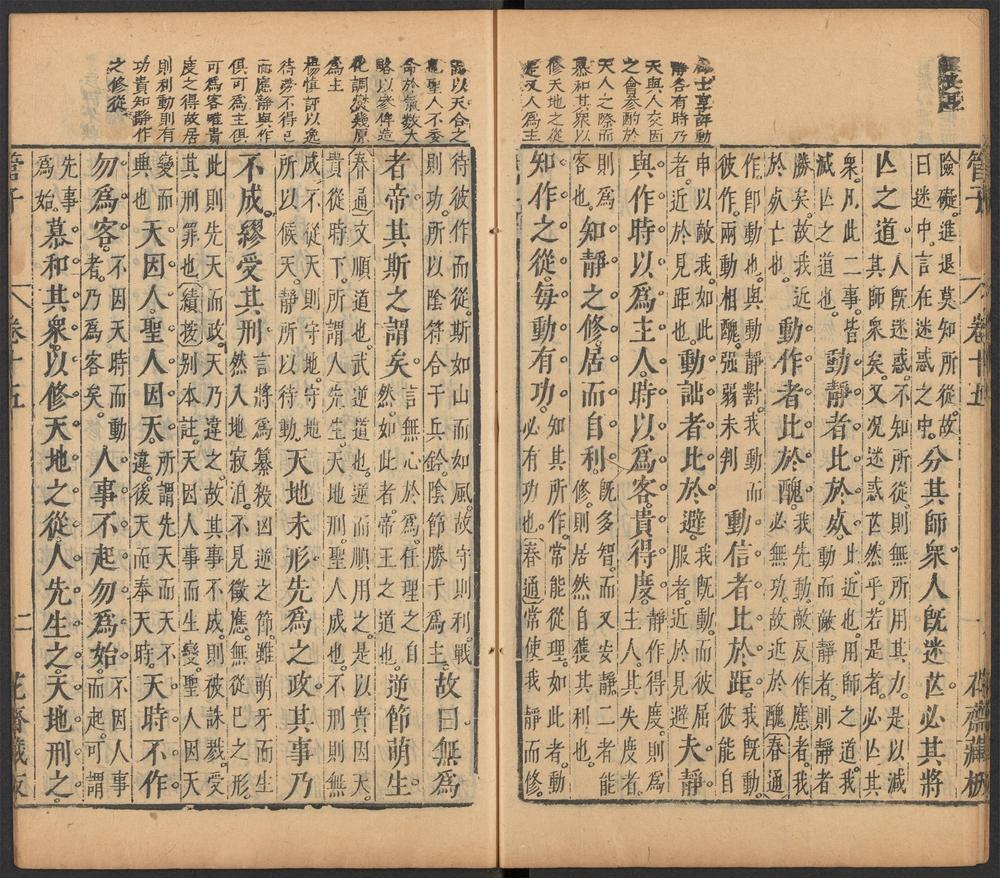 管子 卷十五 花齋藏板
險礙進退莫知所從故
曰迷中言在迷惑之中
分其師衆。人旣迷芒。必其將
亾之道。
人旣迷惑。不知所從。則無所用其力。是以減
其師衆矣。又况迷惑芒然乎。若是者。必亾其
衆。凡此二事。皆
滅亾之道也。
動靜者比於死。
比近也。用師之道。我
動而敵靜者。則
勝矣。故我近
於死亡也。
動作者比於醜。
我先動。敵友作應者。我
必無功。故近於醜。春通
作卽動也。與動靜對。我動而
彼作。兩動相醜。强弱未判
動信者比於距。
我能動
彼能自
申以敵我。我如
者近於見距也。
動詘者比於避。
我旣動。而彼屈
服者。近於見避
夫靜
與作。時以爲主人。時以爲客。貴得度。
靜作得度。則爲
主人。其失度者。
則爲
客也。
知靜之修。居而自利。
旣多智。而又安靜。二者能
修。則居然自獲其利也。
知作之從。每動有功。
知其所作。常能從理。如此者。動
必有功也。春通常使我靜而修。
士享評動
靜各有時乃
天與人交因
之會參酌於
天人之際而
慕和其衆以
修天地之從
是又人爲主
待彼作而從。斯如山而如風。故守則利。戰
則功。所以陰符合于兵鈐。陰節勝于爲主。
故曰。無爲
者帝。其斯之謂矣。
言無心於爲。任理之自
然。如此者。帝王之道也。
逆節萌生
春通文順道也。武逆道也。逆而順用之。是以貴因天
貴從時下。所謂人先生天地刑。聖人成也。不刑則無
成。不從天則守地。守地
所以候天。靜所以待動。
天地未形。先爲之政。其事乃
不成。繆受其刑。
言將爲纂殺凶逆之節。雖萌牙而生
然入地寂泊。不見徵應。無從巳之形
此則先天而政。天乃違之。故其事不成。則被誅戮受
其刑罪也。續按别本註天因人事而生變。聖人因天
變而
典也
天因人。聖人因天。
所謂先天而天不
違。後天而奉天時。
天時不作
勿爲客。
不因天時而動
者。乃爲客矣。
人事不起勿爲始。
不因人事
而起。可謂
先事
爲始。
慕和其衆。以修天地之從。人先生之。天地刑之。
以天合之
聖人不委
命於氣數大
略以參俾造
化調燮幾原
爲主
楊慎評以逸
待勞不得已
而應靜與作
俱可爲主俱
可爲客唯貴
度之得故居
則利動則有
功貴知靜作
之修從
管子 卷十五 二 花齋藏板